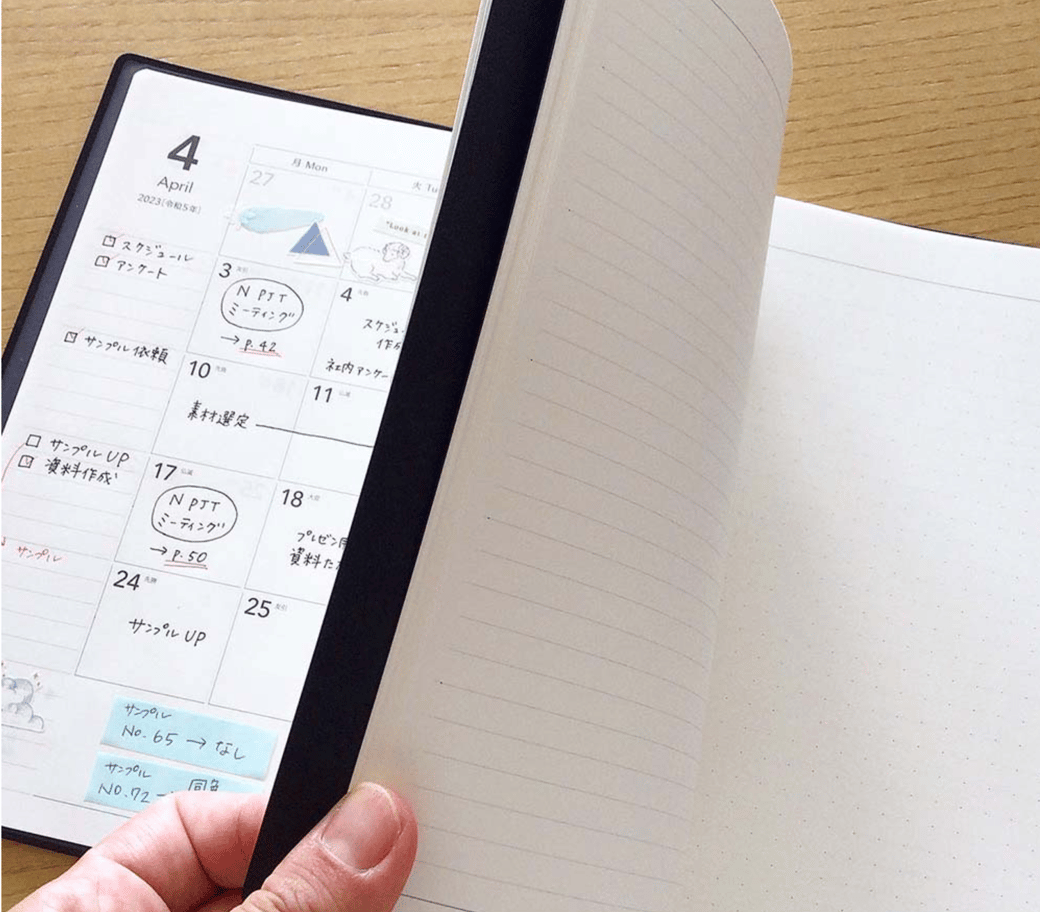 4
April
2023[令和5年]
月 Mon
火 Tu
27
28
"Look at
スケジュール
アンケート
3 友引
N PJT
ミーティング
→ p.42
4 先負
スケジュー
作成
社内アンケー
サンプル依頼
10 先負
素材選定
11 仏滅
サンプル UP
資料作成
17 仏滅
N PJT
ミーティング
→ p.50
18 大安
プレゼン用
資料
サンプル
24 先勝
サンプル UP
25 友引
サンプル
No.65 → なし
サンプル
NO.72 → 同色